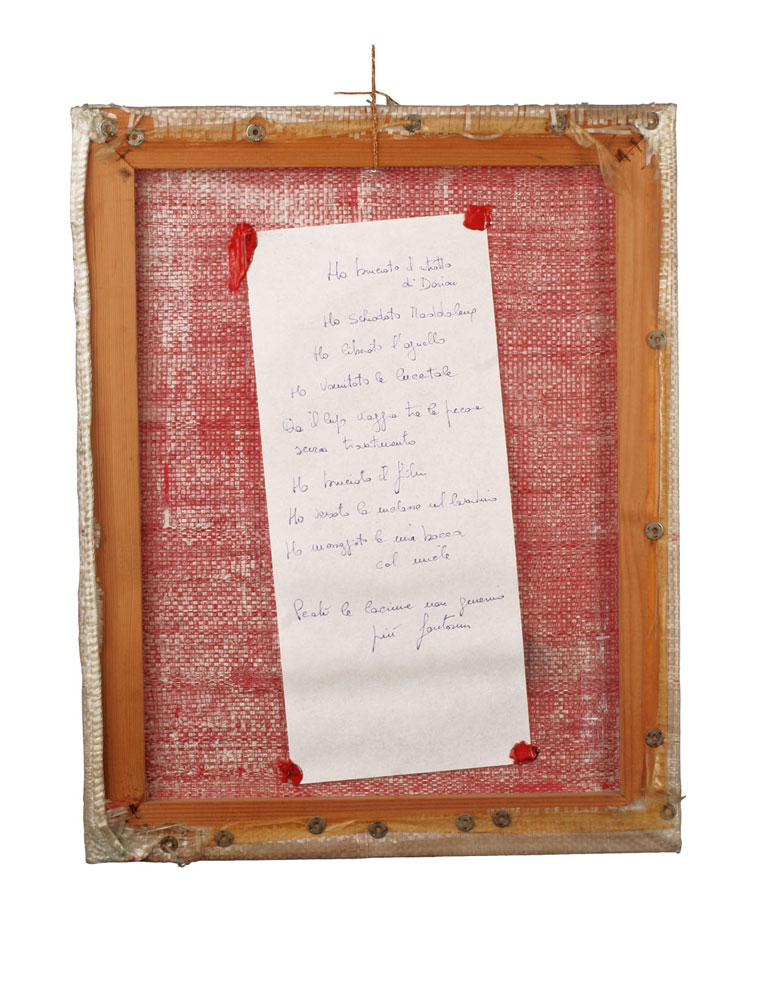 Ho bruciato il ritratto
di Dorian
Ho schiodato Maddalena
Ho liberato l'agnello
Ho vomitato le lucertole
Ora il lupo viaggia tra le pecore
senza travestimento
Ho bruciato il film
Ho versato la melassa nel lavandino
Ho mangiato la mia bocca
col miele
Perché le lacrime non generino
più fantasmi